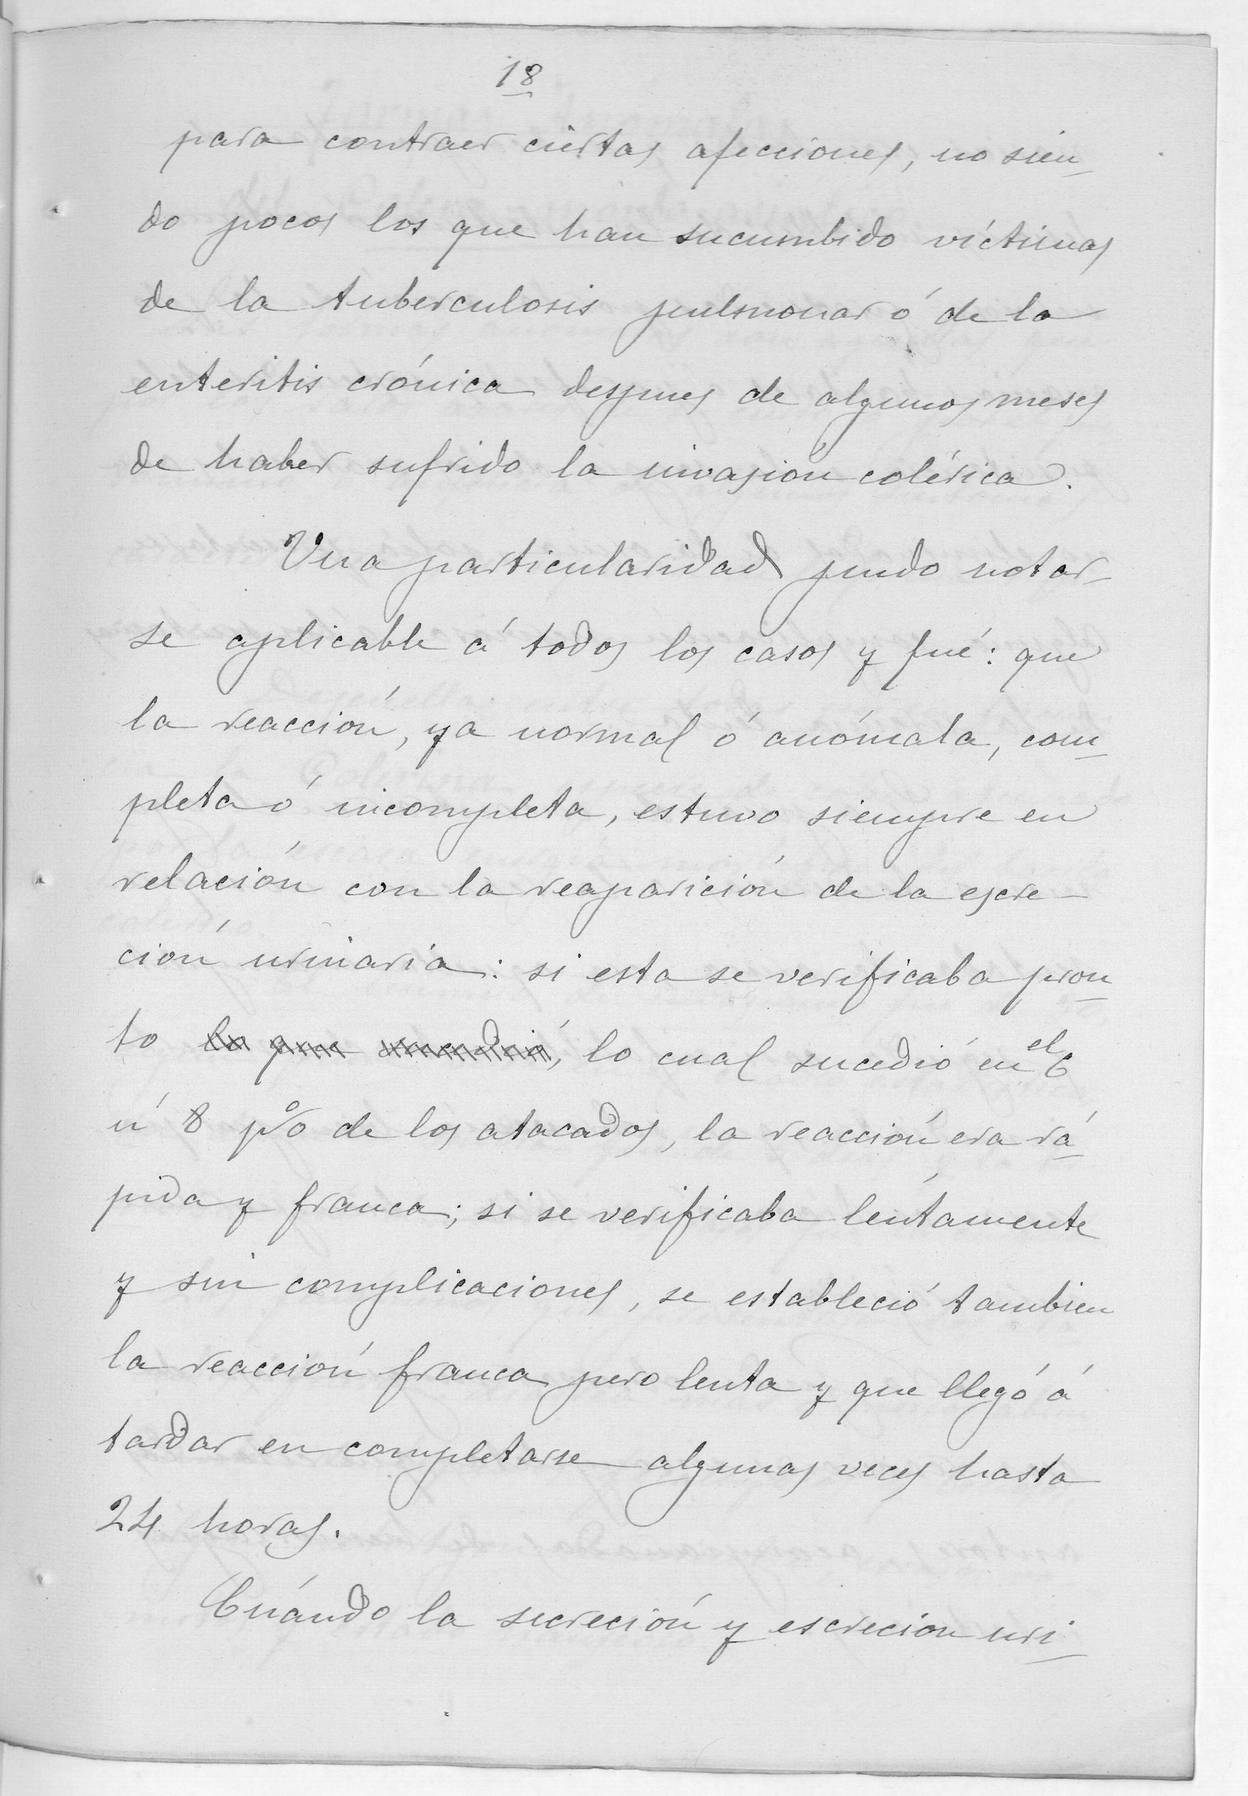 18
para contraer ciertas afecciones, no sien-
do pocos los que han sucumbido víctimas
de la tuberculosis pulmonar ó de la
enteritis crónica despues de algunos meses
de haber sufrido la invasión colérica.
Una particularidad pudo notar-
se aplicable á todos los casos y fué: que
la reacción, ya normal ó anómala, com-
pleta ó incompleta, estuvo siempre en
relación con la reaparición de la escre-
ción urinaria: si esta se verificaba pron-
to lo que sucedió, lo cual sucedió en el 6
ú 8 p% de los atacados, la reacción era rá-
pida y franca; si se verificaba lentamente
y sin complicaciones, se estableció tambien
la reacción franca pero lenta y que llegó á
tardar en completarse algunas veces hasta
24 horas.
Cuándo la secreción y escrecion uri-